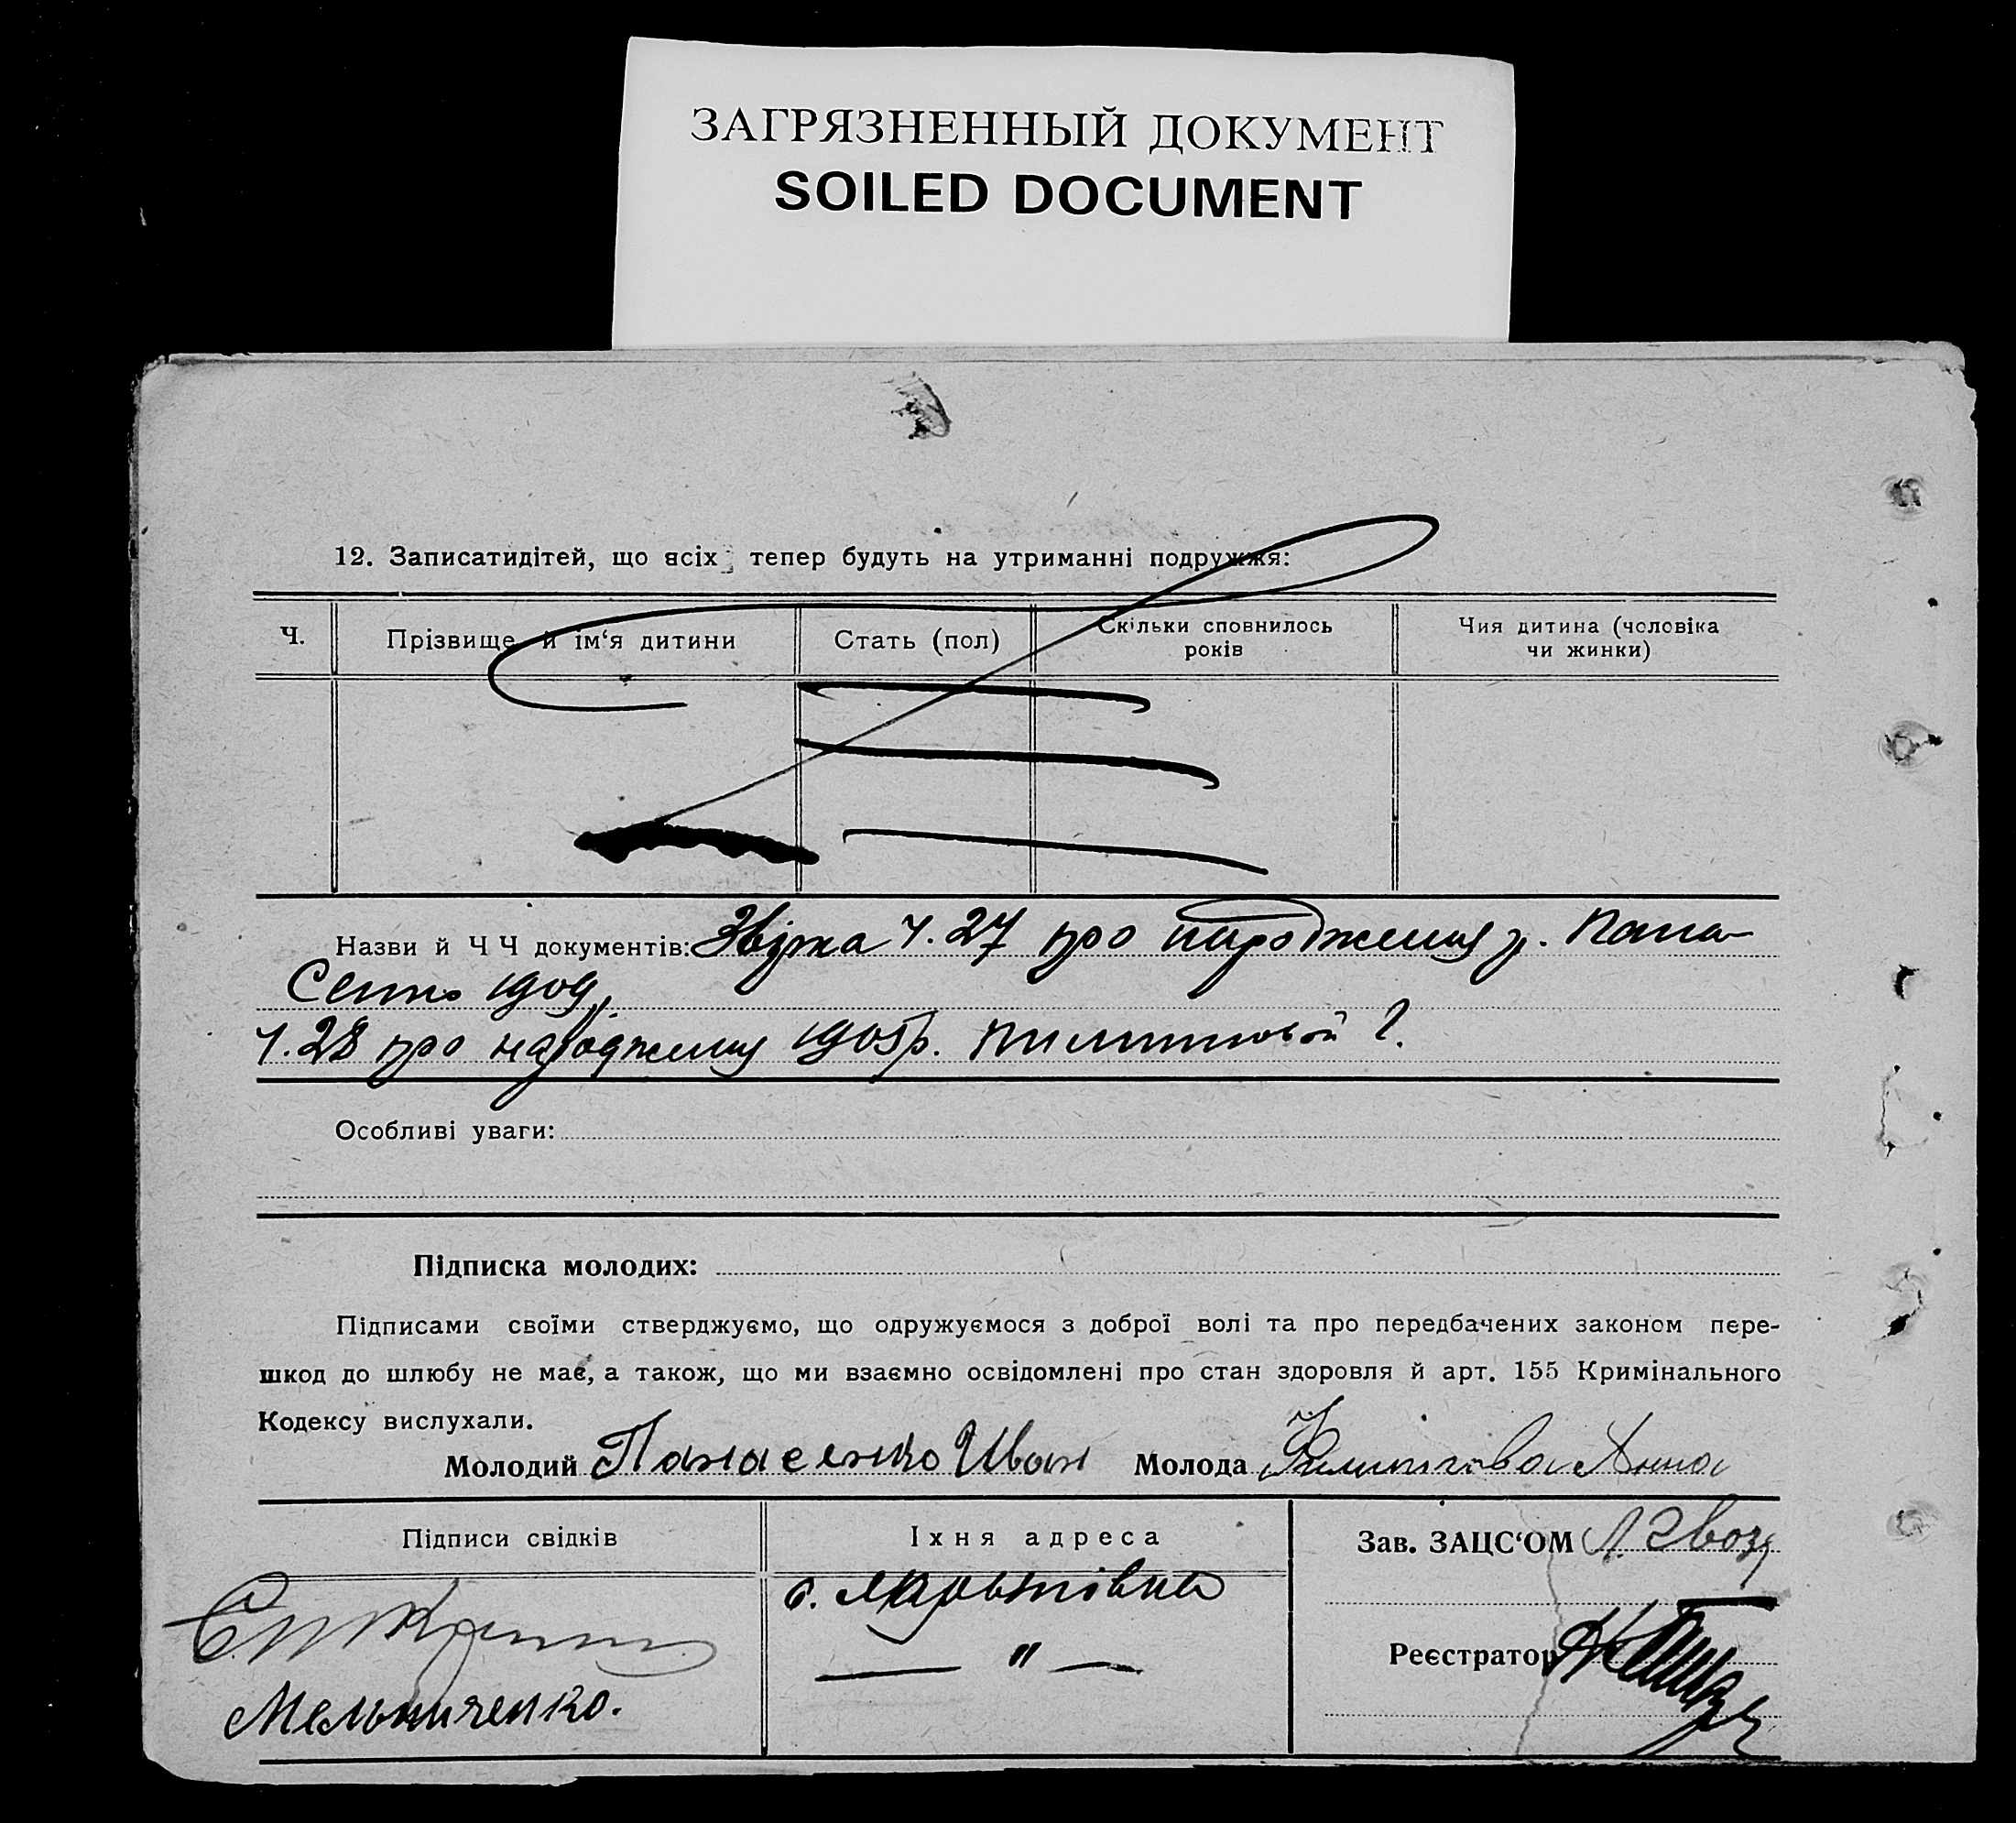 ЗАГРЯЗНЕННЫЙ ДОКУМЕНТ
SOILED DOCUMENT
12. Записатидітей, що всіх тепер будуть на утриманні подружжя:
Ч.
Прізвище й ім‘я дитини
Стать (пол)
Скільки сповнилось років
Чия дитина (чоловіка чи жинки)
Назви й Ч Ч документів: ч. 27 про Пана-
сенко 1909
ч. 28 про народження 1905 р.
Особливі уваги:
Підписка молодих:
Підписами своїми стверджуємо, що одружуємося з доброї волі та про передбачених законом пере-
шкод до шлюбу не має, а також, що ми взаємно освідомлені про стан здоровля й арт. 155 Кримінального
Кодексу вислухали.
Молодий Панасенко Иван Молода Анна
Підписи свідків
Їхня адреса
Зав. ЗАЦС‘ОМ
с.
— " —
Реєстратор
Мельниченко.